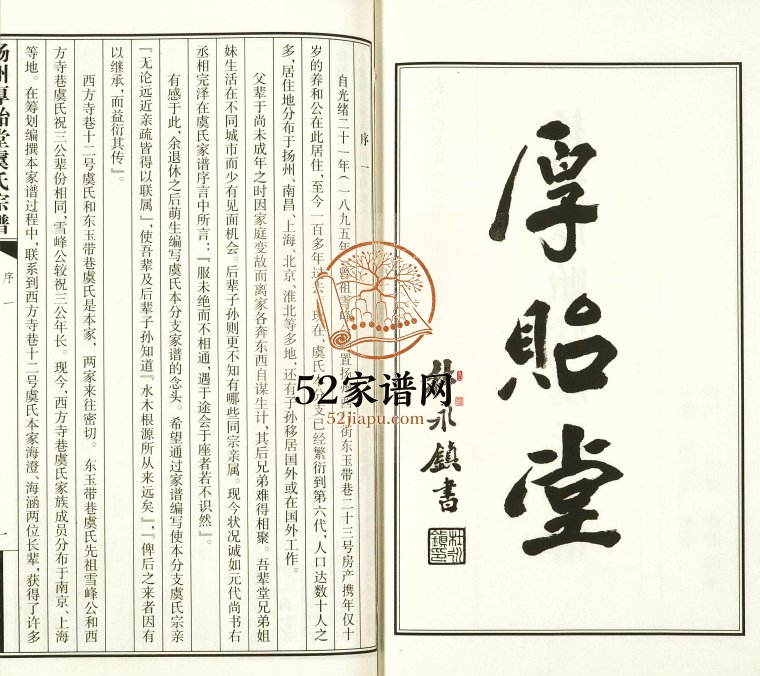 厚貽堂
永鎮書
序一
自光绪二十一年（一八九五年
置扬
街东玉带巷二十三号房产携年仅十
岁的养和公在此居住，至今一百多年过去
现在，虞氏
支已经繁衍到第六代，人口达数十人之
多，居住地分布于扬州、南昌、上海、北京、淮北等多地，还有子孙移居国外或在国外工作。
父辈于尚未成年之时因家庭变故而离家各奔东西自谋生计，其后兄弟难得相聚。吾辈堂兄弟姐
妹生活在不同城市而少有见面机会。后辈子孙则更不知有哪些同宗亲属。现今状况诚如元代尚书右
丞相完泽在虞氏家谱序言中所言：『服未绝而不相通，遇于途会于座者若不识然』。
有感于此，余退休之后萌生编写虞氏本分支家谱的念头。希望通过家谱编写使本分支虞氏宗亲
『无论远近亲疏皆得以联属』，使吾辈及后辈子孙知道『水木根源所从来远矣』，『俾后之来者因有
以继承，而益衍其传』。
西方寺巷十二号虞氏和东玉带巷虞氏是本家，两家来往密切。东玉带巷虞氏先祖雪峰公和西
方寺巷虞氏祝三公辈份相同，雪峰公较祝三公年长。现今，西方寺巷虞氏家族成员分布于南京、上海
等地。在筹划编撰本家谱过程中，联系到西方寺巷十二号虞氏本家海澄、海涵两位长辈，获得了许多
扬州厚贻堂虞氏宗谱
序一
一
52家谱网
52jiapu.com